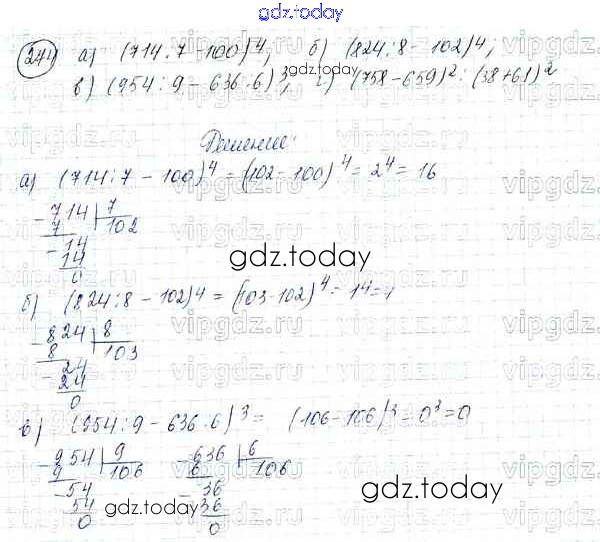 gdz.today
244 а) (714:7-100)⁴; б) (824:8-102)⁴;
в) (954:9-636:6)³; г) (758-659)²:(38+61)²
Решение:
а) (714:7-100)⁴=(102-100)⁴=2⁴=16
-714 7
7 102
-14
14
0
gdz.today
б) (824:8-102)⁴=(103-102)⁴=1⁴=1
-824 8
8 103
-24
24
0
в) (954:9-636:6)³= (106-106)³=0³=0
-954 9 -636 6
9 106 6 106
-54 -36
54 36
0 0
gdz.today gdz.today
vipgdz.ru